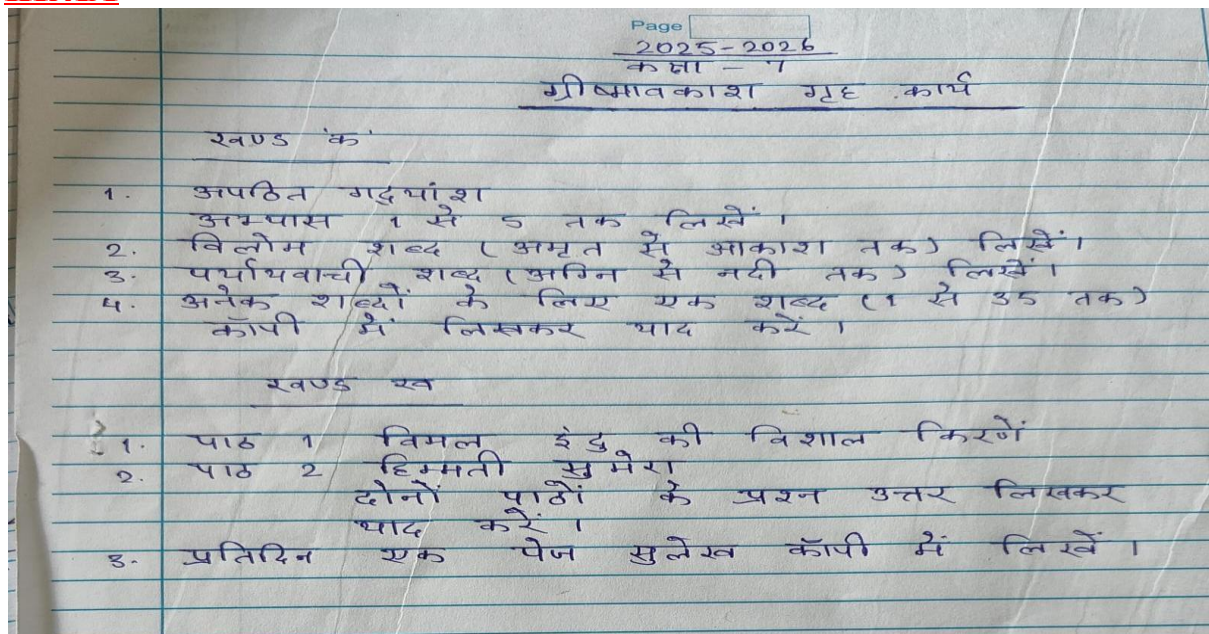 Page
2025-2026
कक्षा - 7
ग्रीष्मावकाश गृह कार्य
खण्ड 'क'
1. अपठित गद्यांश
अभ्यास 1 से 5 तक लिखें।
2. विलोम शब्द (अमृत से आकाश तक) लिखें।
3. पर्यायवाची शब्द (अग्नि से नदी तक) लिखें।
4. अनेक शब्दों के लिए एक शब्द (1 से 35 तक)
कॉपी में लिखकर याद करें।
खण्ड ख
1. पाठ 1 विमल इंदु की विशाल किरणें
2. पाठ 2 हिम्मती सुमेरा
दोनों पाठों के प्रश्न उत्तर लिखकर
याद करें।
3. प्रतिदिन एक पेज सुलेख कॉपी में लिखें।